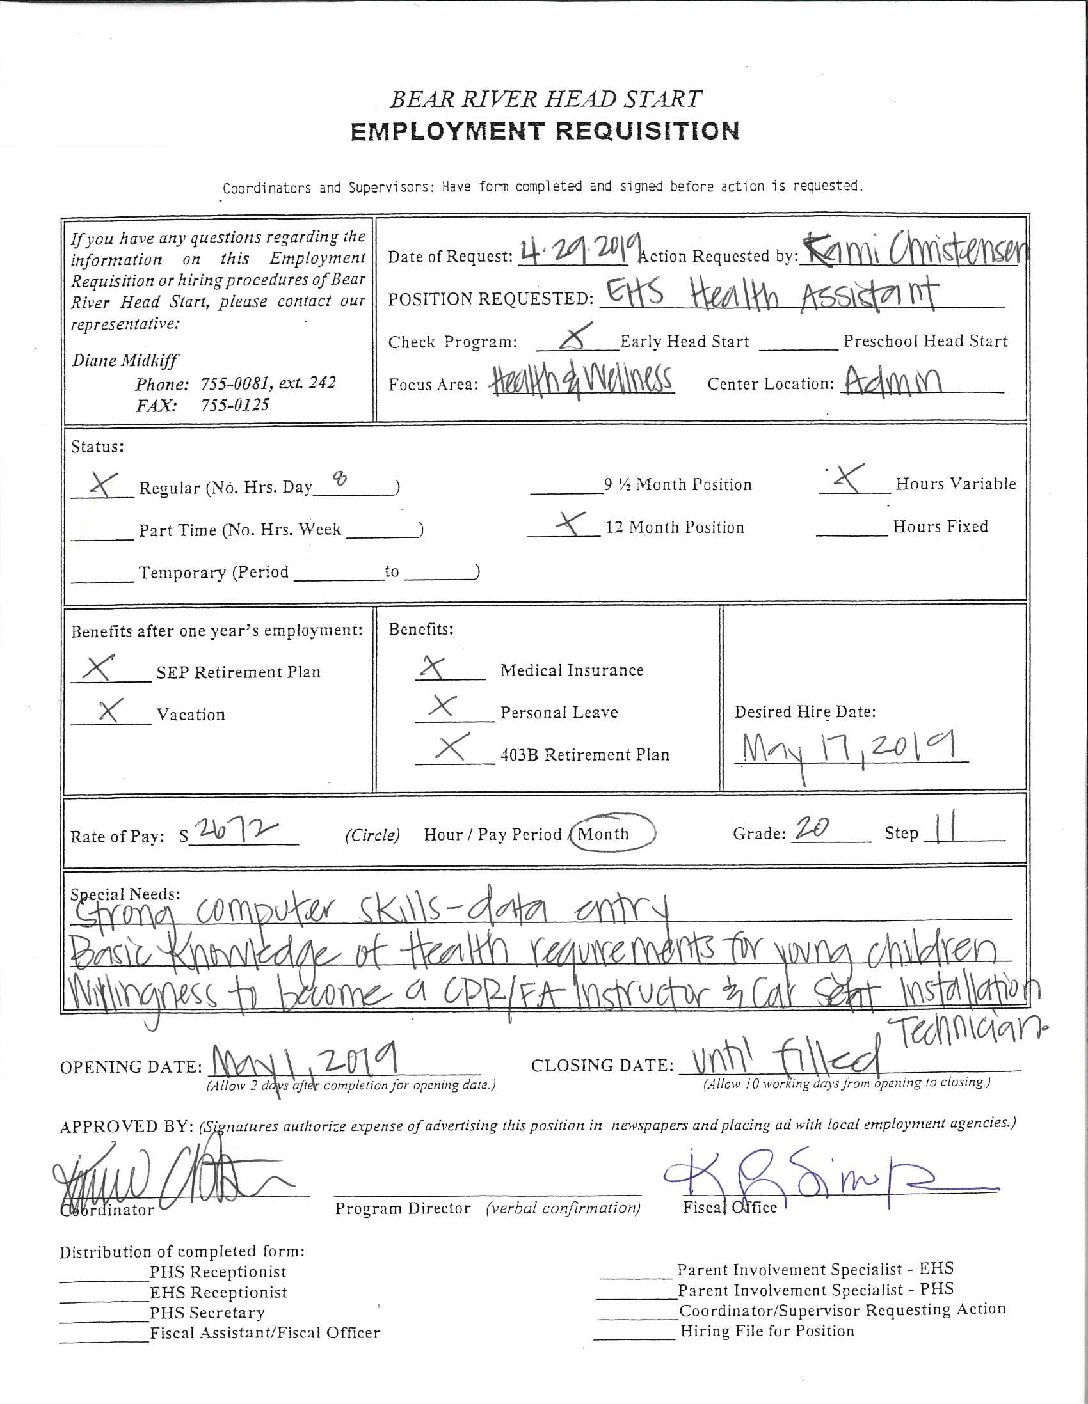 BEAR RIVER HEAD START
EMPLOYMENT REQUISITION
Coordinators and Supervisors: Have form completed and signed before action is requested.
If you have any questions regarding the
information on this Employment
Requisition or hiring procedures of Bear
River Head Start, please contact our
representative:
Diane Midkiff
Phone: 755-0081, ext. 242
FAX: 755-0125
Date of Request: 4-29-2019 Action Requested by: Kami Christensen
POSITION REQUESTED: EHS Health Assistant
Check Program: X Early Head Start ______ Preschool Head Start
Focus Area: Health & Wellness Center Location: Admin
Status:
X Regular (No. Hrs. Day 8 ) ______ 9 ½ Month Position X Hours Variable
______ Part Time (No. Hrs. Week ______) X 12 Month Position ______ Hours Fixed
______ Temporary (Period ______ to ______)
Benefits after one year's employment:
X SEP Retirement Plan
X Vacation
Benefits:
X Medical Insurance
X Personal Leave
X 403B Retirement Plan
Desired Hire Date:
May 17, 2019
Rate of Pay: $ 2672 (Circle) Hour / Pay Period / Month Grade: 20 Step 11
Special Needs:
Strong computer skills - data entry
Basic Knowledge of Health requirements for young children
Willingness to become a CPR/FA Instructor & Car Seat Installation
Technician
OPENING DATE: May 1, 2019 CLOSING DATE: until filled
(Allow 2 days after completion for opening date.) (Allow 10 working days from opening to closing.)
APPROVED BY: (Signatures authorize expense of advertising this position in newspapers and placing ad with local employment agencies.)
Coordinator Program Director (verbal confirmation) Fiscal Office
Distribution of completed form:
______ PHS Receptionist
______ EHS Receptionist
______ PHS Secretary
______ Fiscal Assistant/Fiscal Officer
______ Parent Involvement Specialist - EHS
______ Parent Involvement Specialist - PHS
______ Coordinator/Supervisor Requesting Action
______ Hiring File for Position